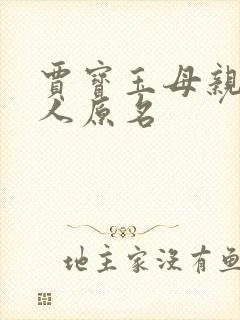 賈寶玉母親
人原名
地主家沒有魚